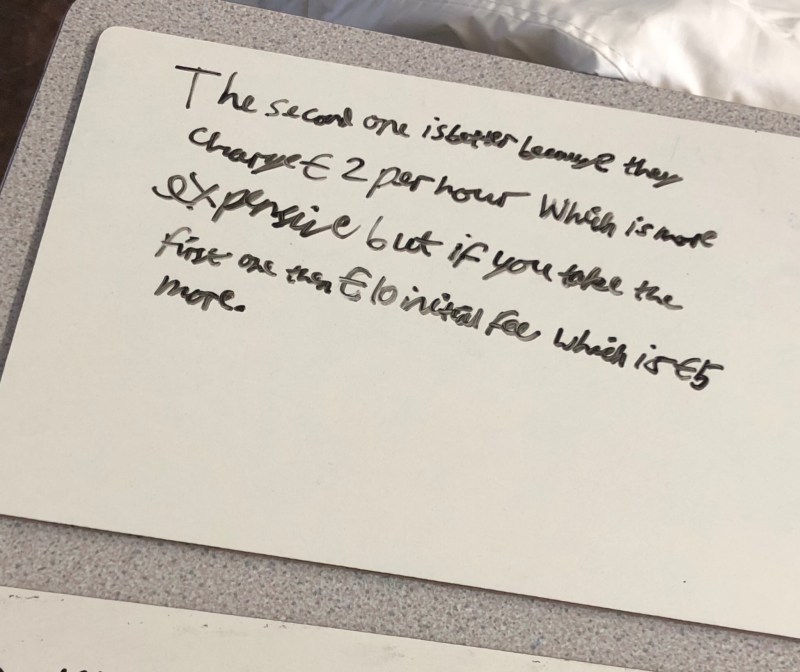 The second one is better because they
charge € 2 per hour which is more
expensive but if you take the
first one then €10 initial fee which is €5
more.